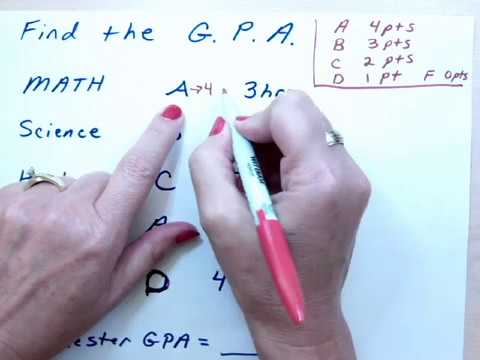 Find the G.P.A.
A 4pts
B 3pts
C 2pts
D 1pt F 0pts
MATH A→4 3
Science
C
A
D 4
GPA =